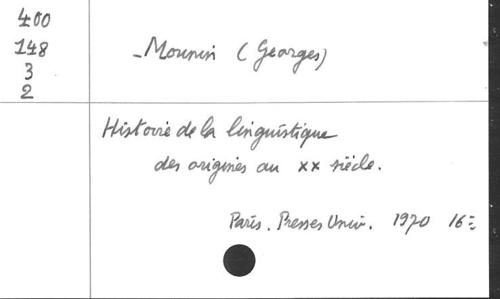 400
148
3
2
- Mounin (Georges)
Histoire de la linguistique
des origines au XX siècle.
Paris. Presses Univ. 1970 16=